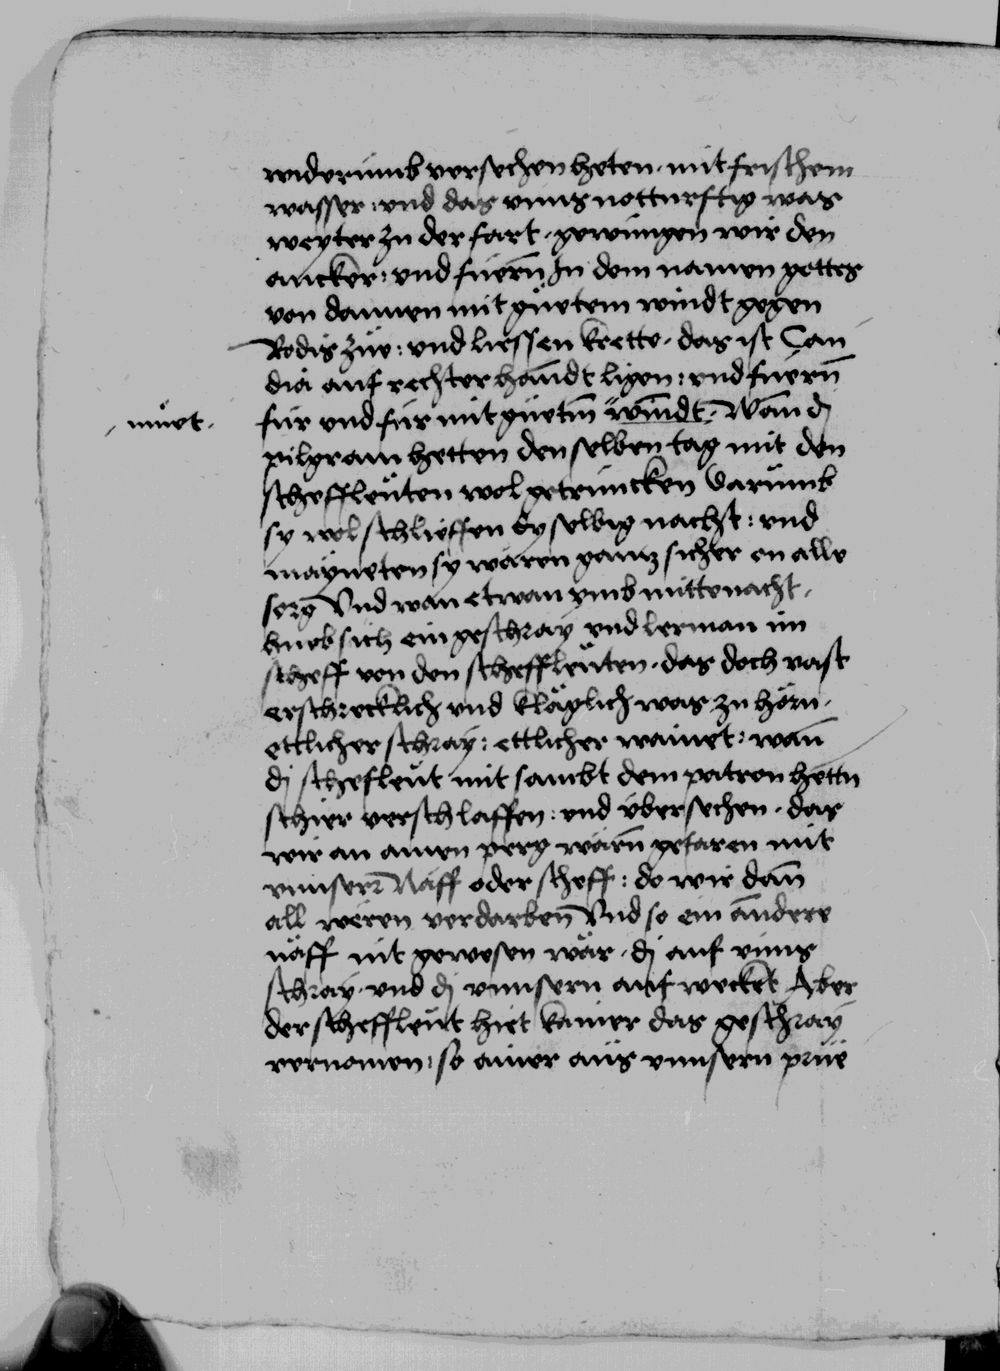 widerumb versechen heten · mit frischem
wasser : vnd das vnns notturftig was
weyter zu der fart · gewungen wir den
anncker : vnd fuern̄ In dem namen gottes
von dannen mit güetem windt gegen
Rodis züe : vnd liessen kretto · das ist Can
dia auf rechter handt ligen : vnd fuern̄
für vnd für mit güetm̄ windt · Wan̄ dj
muet ·
pilgram hetten den selben tag mit den
scheffleuten wol getruncken Darumb
sy wol schlieffen dy selbig nacht : vnd
mayneten sy wären gantz sicher on alle
sorg Vnd wan etwan vmb mittenacht ·
hueb sich ein geschray vnd lerman im
scheff von den scheffleuten · das doch vast
erschrecklich vnd kläglich was zu hörn ·
ettlicher schray : ettlicher wainet : wan̄
dj schefleut mit sambt dem patron hettn
schier verschlaffen : vnd übersechen · das
wir an ainen perg wärn̄ gefaren mit
vnnser Näff oder scheff : do wir dan̄
all weren verdarben̄ Vnd so ein andere
näff nit gewesen wär · dj auf vnns
schray · vnd dj vnnsern auf wecket Aber
der scheffleut hiet kainer das geschray
vernomen : so ainer aus vnnsern prüe